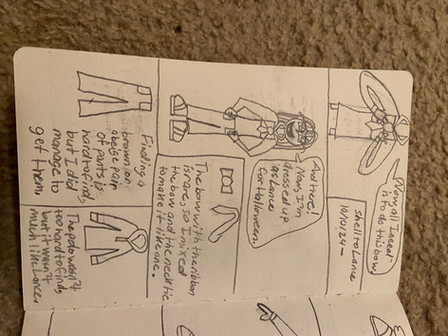 Now, all I need
is to do this bow.
Shell to Lance
10/10/24-
And there!
Now, I'm
dressed up
as Lance
for Halloween.
The bow with the ribbon
is rare, so I mixed
the bow and the necktie
to make it like one.
Finding a
brown or
a beige pair
of pants is
hard to finds,
but I did
manage to
get them.
The polo wasn't
too hard to find,
but it wasn't
much like Lance.